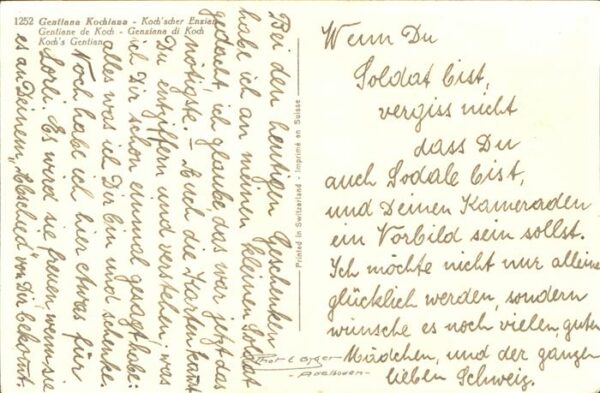 1252 Gentiana Kochiana - Koch'scher Enzian
Gentiane de Koch - Genziana di Koch
Koch's Gentian
Bei den heutigen Geschenken
habe ich an meinen kleinen Soldat
gedacht, ich glaube das war jetzt das
nötigste. – Auch die Karten kannt
Du entziffern und verstehen, was
ich Dir schon einmal gesagt habe:
alles was ich Dir bin und schenke.
Noch habe ich hier etwas für
Lorli. Es wird sie freuen wenn sie
es an Deinem "Abschied" von Dir bekommt.
Printed in Switzerland - Imprimé en Suisse
Wenn Du
Soldat bist,
vergiss nicht
dass Du
auch Sodale bist,
und Deinen Kameraden
ein Vorbild sein sollst.
Ich möchte nicht nur alleine
glücklich werden, sondern
wünsche es noch vielen, guten
Mädchen, und der ganzen
lieben Schweiz.
Gyger
- Adelboden -